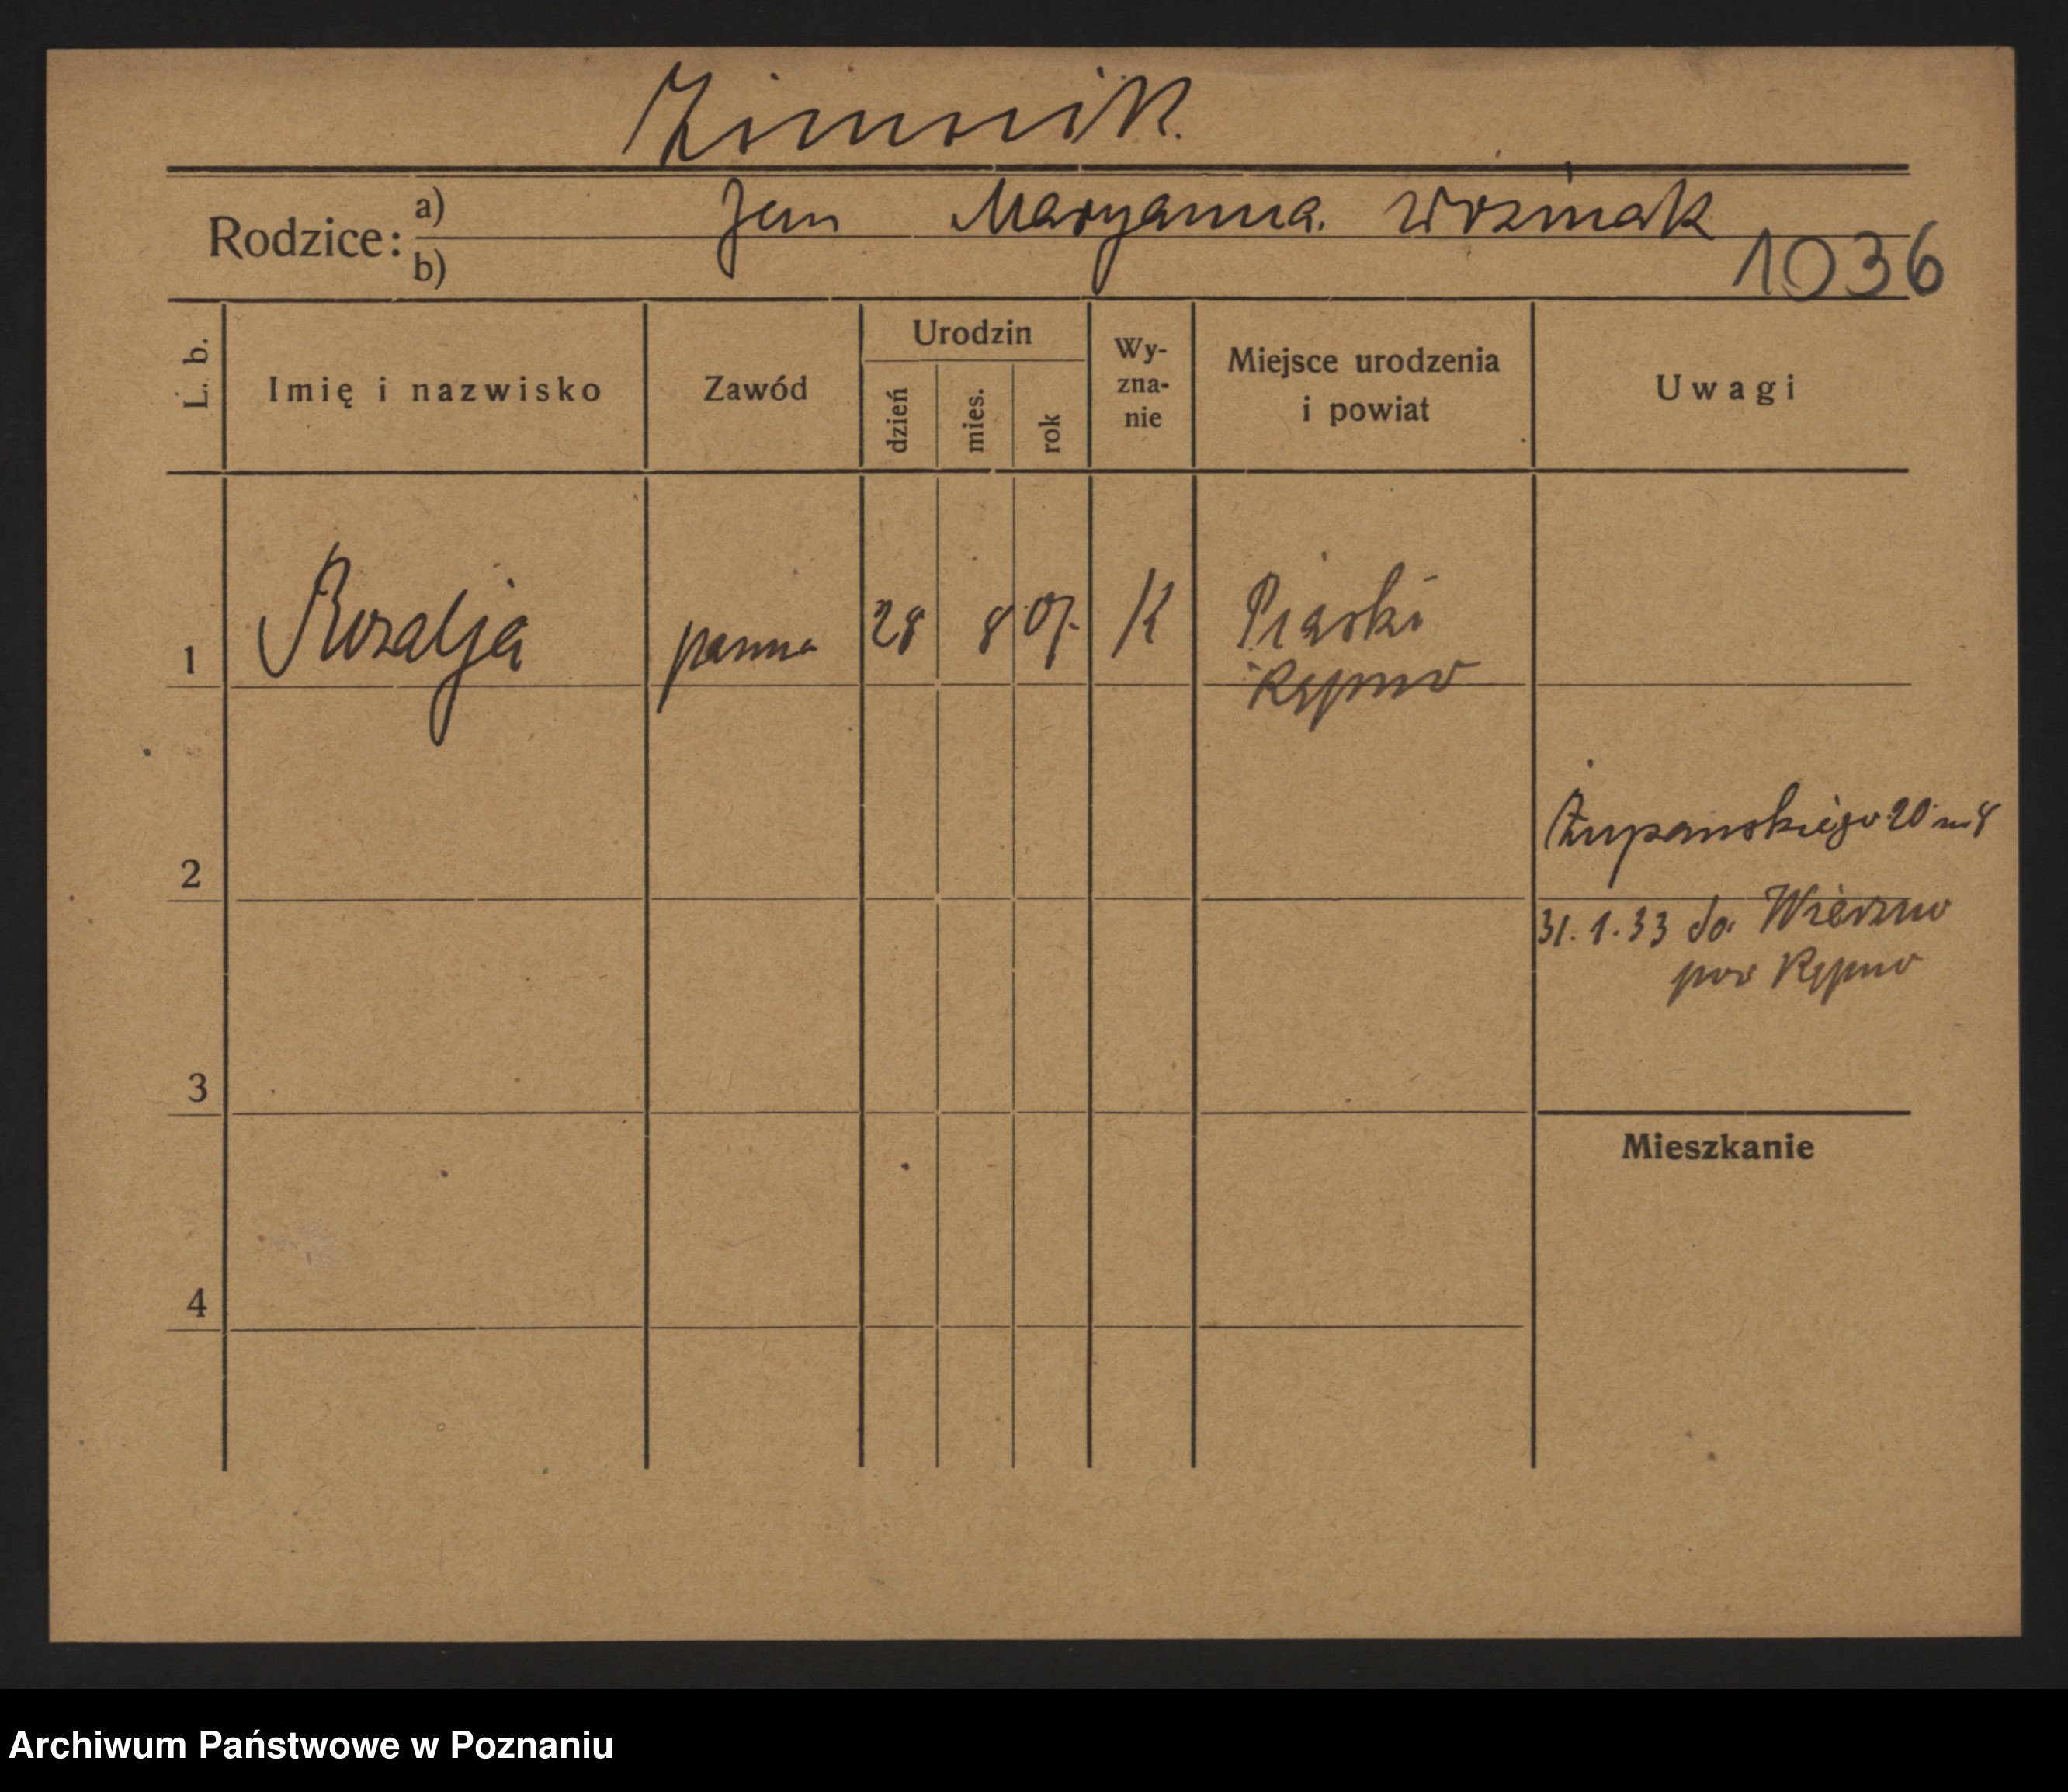 Zimnik.
Rodzice: a) Jan Maryanna. Woźniak
b)
1036
L. b.
Imię i nazwisko
Zawód
Urodzin
dzień
mies.
rok
Wy-
zna-
nie
Miejsce urodzenia
i powiat
Uwagi
1 Rozalja panna 28 8 07. K Piaski
Kępno
Żupańskiego 20 m 8
2
31.1.33 do Wierzno
pow Kępno
3
Mieszkanie
4
Archiwum Państwowe w Poznaniu